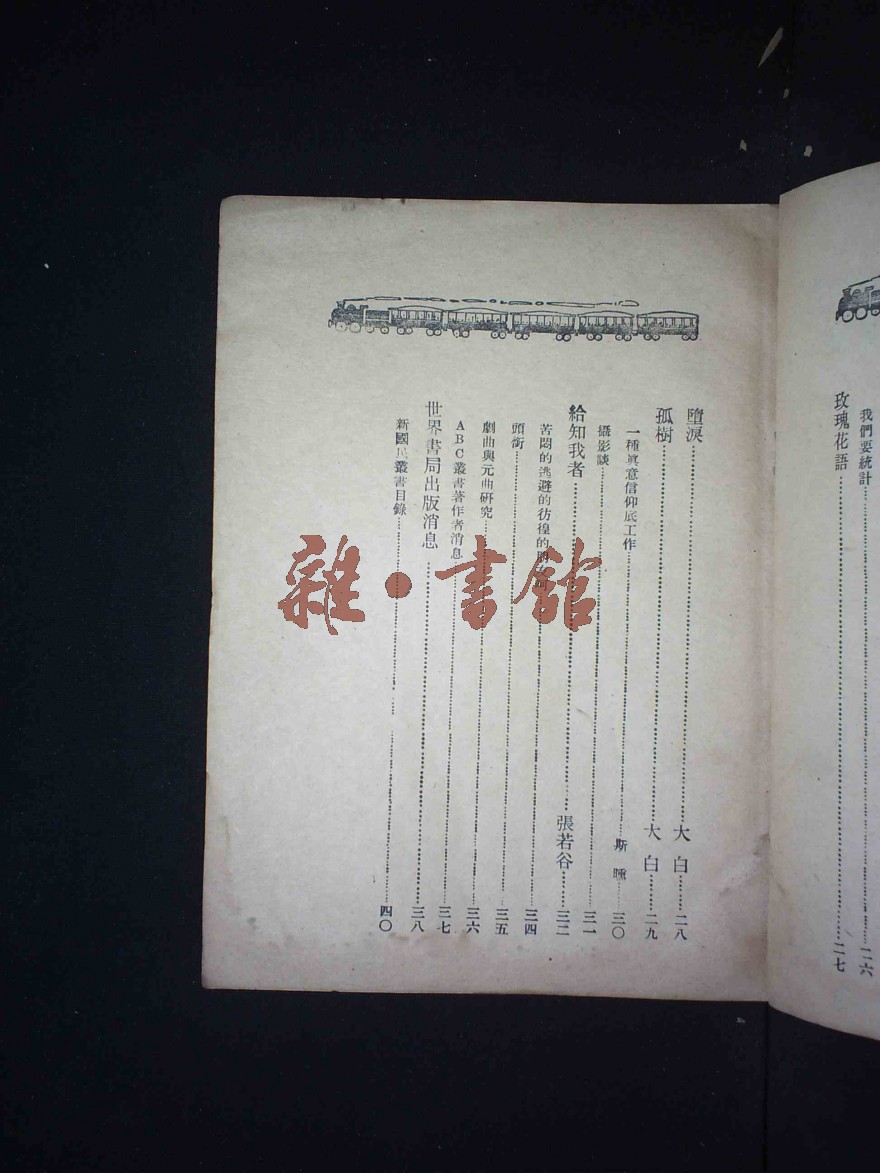 我們要統計……二六
玫瑰花語……二七
墮淚……大白……二八
孤樹……大白……二九
一種眞意信仰底工作……斯曛……三〇
攝影談……三一
給知我者……張若谷……三二
苦悶的逃避的彷徨的……三四
頭銜……三五
劇曲與元曲研究……三六
ABC叢書著作者消息……三七
世界書局出版消息……三八
新國民叢書目錄……四〇
雜·書館